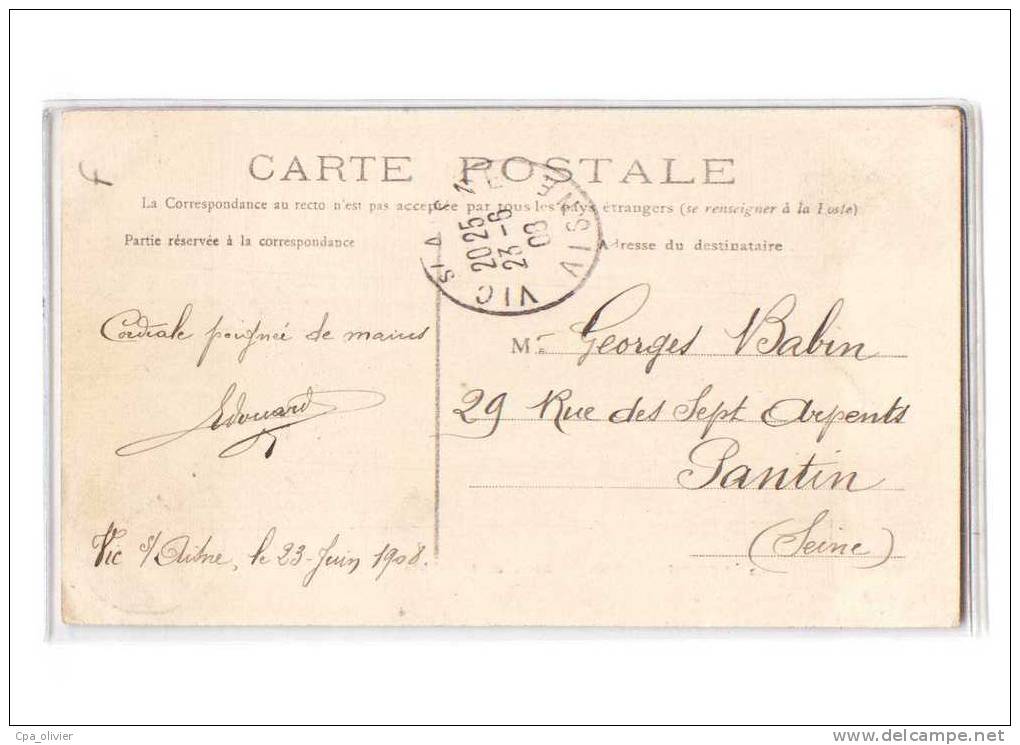 F
CARTE POSTALE
La Correspondance au recto n'est pas acceptée par tous les pays étrangers (se renseigner à la Poste)
Partie réservée à la correspondance
Adresse du destinataire
VIC S/ AISNE
AISNE
20 25
23 - 6
08
Cordiale poignée de mains
Edouard
Vic s/Aisne, le 23 Juin 1908.
Mr Georges Babin
29 Rue des Sept Arpents
Pantin
(Seine)
Cpa_olivier
www.delcampe.net